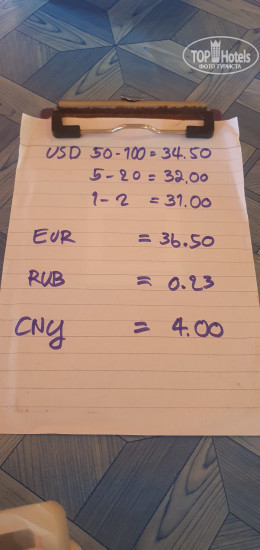 TOP Hotels
ФОТО ТУРИСТА
USD 50-100 = 34.50
5-20 = 32,00
1-2 = 31.00
EUR = 36.50
RUB = 0.23
CNY = 4.00